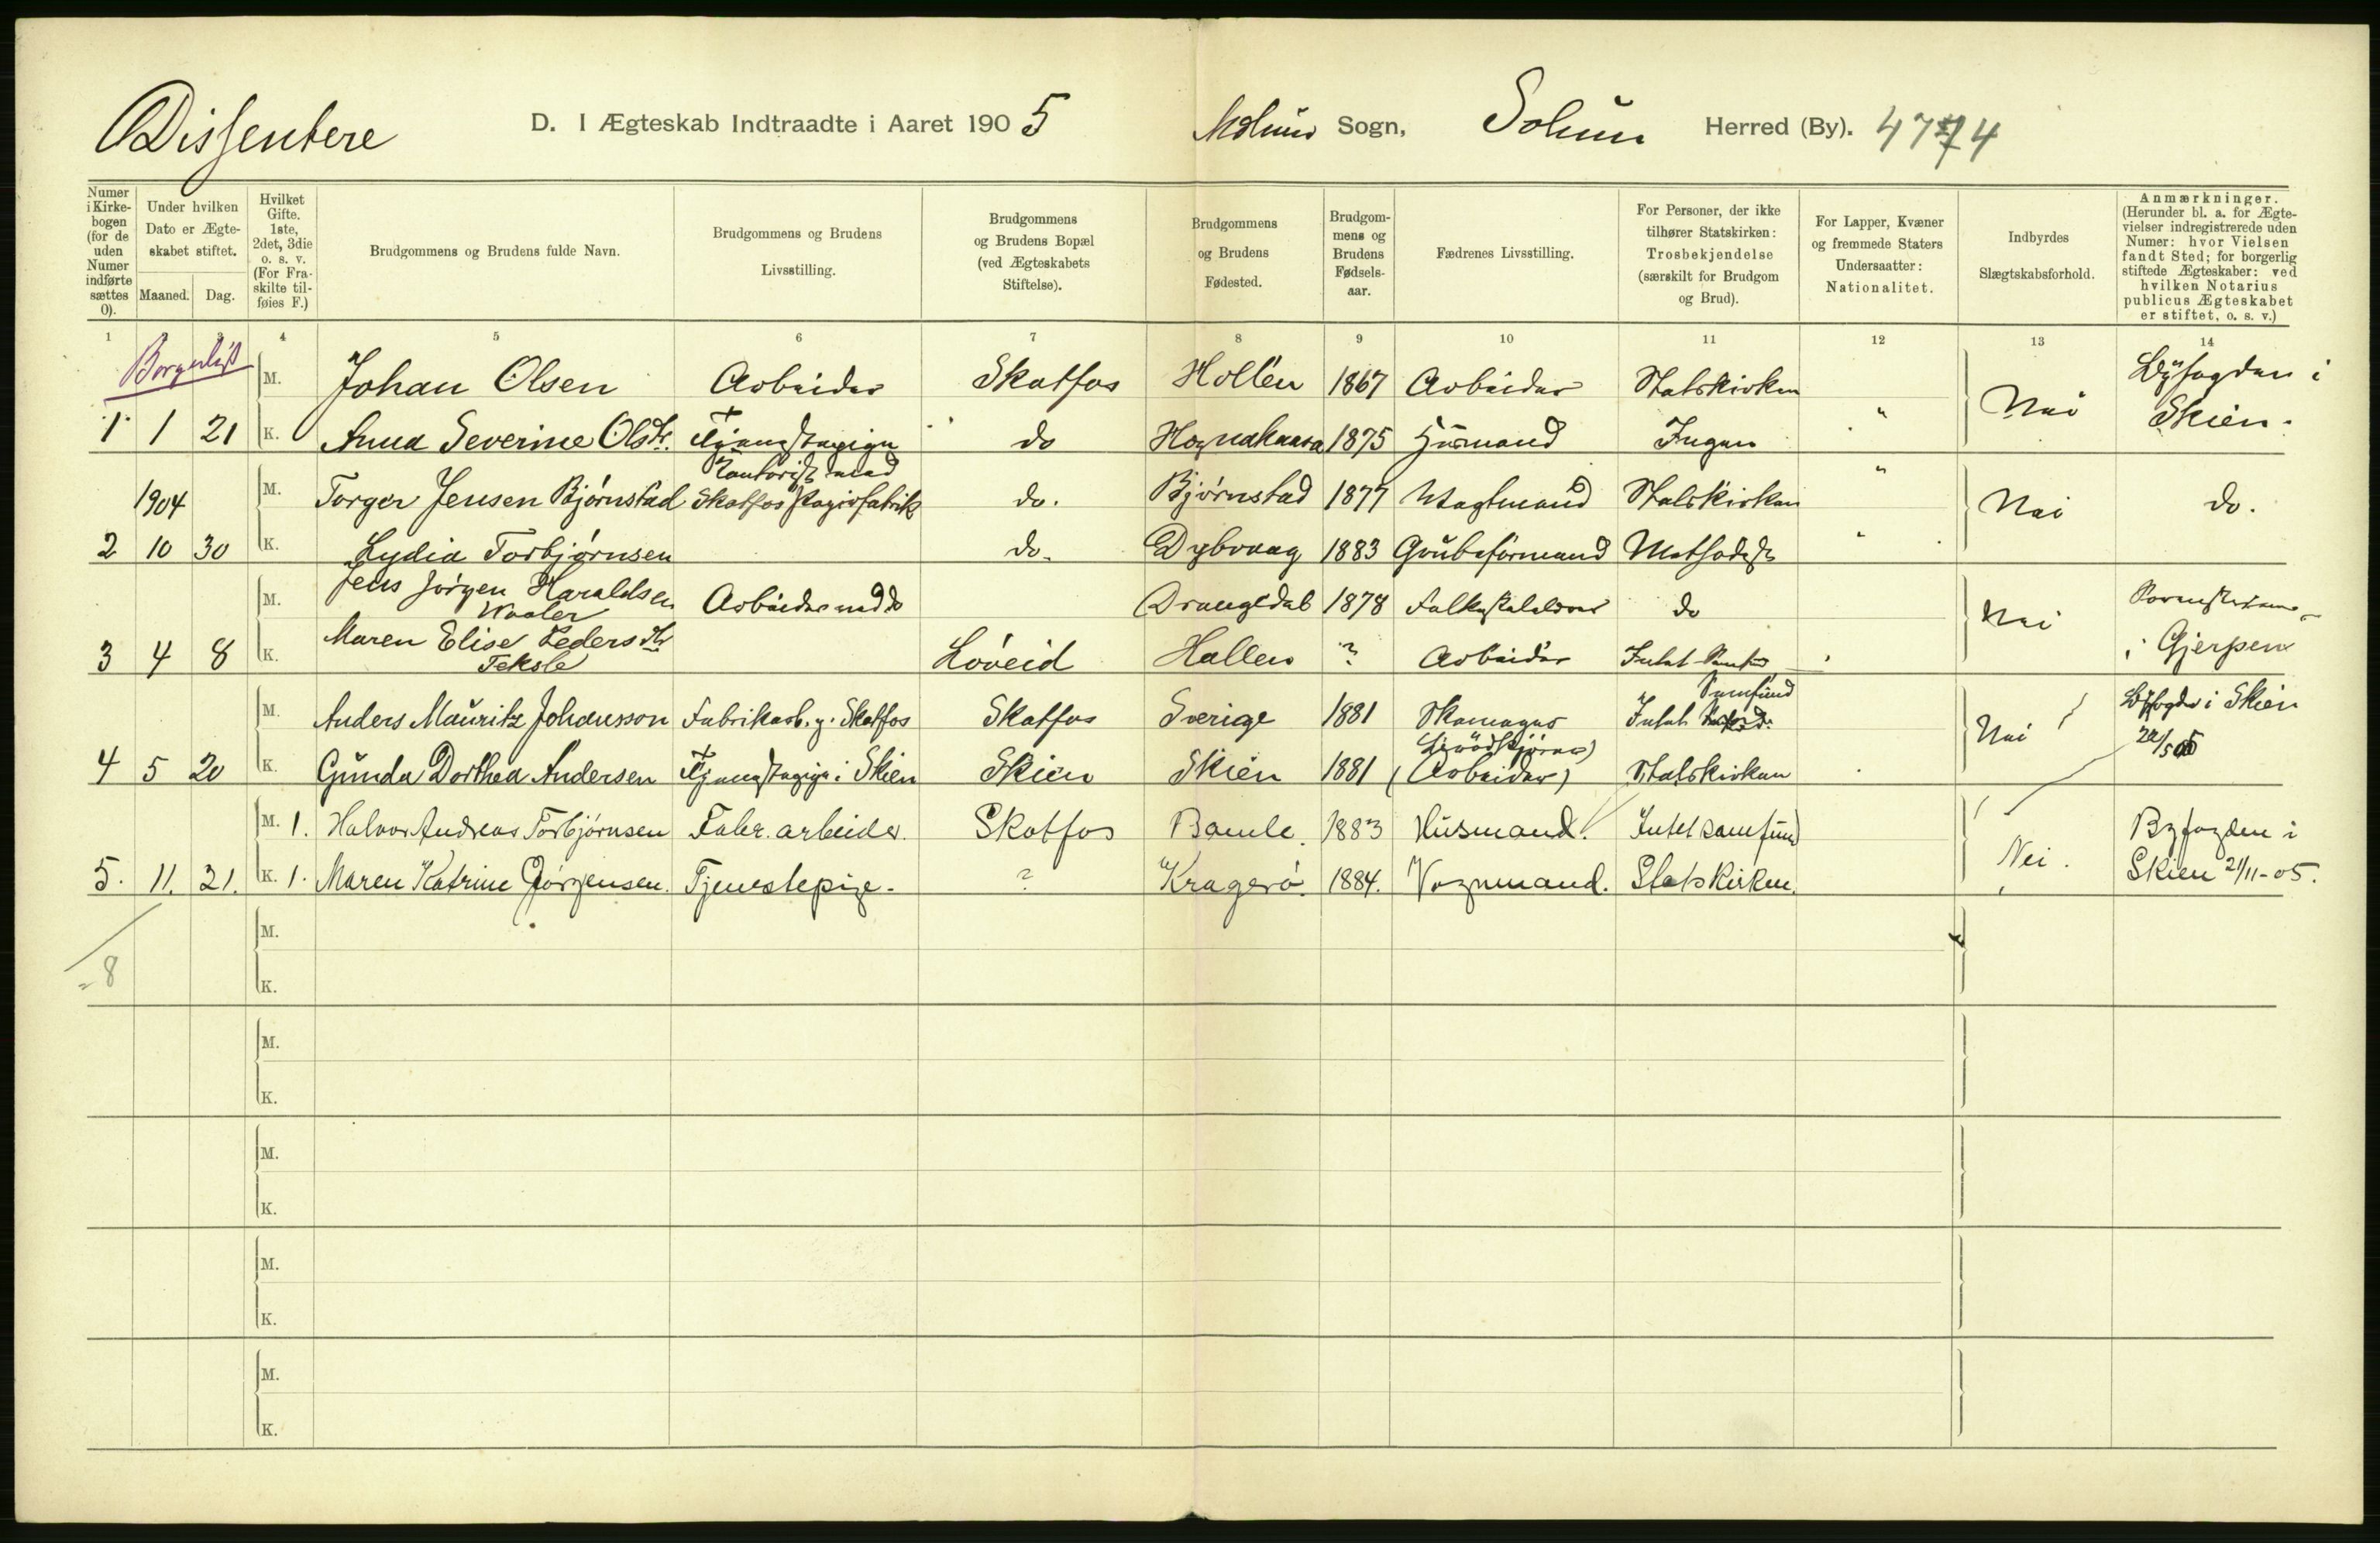 Dissentere
D. I Ægteskab Indtraadte i Aaret 1905
Sogn, Solum Herred (By). 4774
Numer i Kirke-bogen (for de uden Numer indførte sættes 0).
Under hvilken Dato er Ægte-skabet stiftet.
Maaned. Dag.
Hvilket Gifte. 1ste, 2det, 3die o. s. v. (For Fra-skilte til-føies F.)
Brudgommens og Brudens fulde Navn.
Brudgommens og Brudens Livsstilling.
Brudgommens og Brudens Bopæl (ved Ægteskabets Stiftelse).
Brudgommens og Brudens Fødested.
Brudgom-mens og Brudens Fødsels-aar.
Fædrenes Livsstilling.
For Personer, der ikke tilhører Statskirken: Trosbekjendelse (særskilt for Brudgom og Brud).
For Lapper, Kvæner og fremmede Staters Undersaatter: Nationalitet.
Indbyrdes Slægtskabsforhold.
Anmærkninger. (Herunder bl. a. for Ægte-vielser indregistrerede uden Numer: hvor Vielsen fandt Sted; for borgerlig stiftede Ægteskaber: ved hvilken Notarius publicus Ægteskabet er stiftet, o. s. v.)
1 3 4 5 6 7 8 9 10 11 12 13 14
Borgerligt
M. Johan Olsen Arbeider Skotfos Hollen 1867 Arbeider Statskirken Nei Byfogden i
1 1 21 K. Anna Severine Olsdt. Tjenestepige do 1875 Husmand Ingen " Skien.
Kontorist ved
1904 M. Torger Jensen Bjørnstad Skotfos Papirfabrik do. Bjørnstad 1877 Vagtmand Statskirken " Nei do.
2 10 30 K. Lydia Torbjørnsen do. Dybvaag 1883 Grubeformand Methodist "
M. Jens Jørgen Haraldsen Waaler Arbeider ved do Drangedal 1878 do Nei
3 4 8 K. Maren Elise Pedersdtr Teksle Løveid Hollen ? Arbeider i Gjerpen
M. Anders Mauritz Johansson Fabrikarb. p. Skotfos Skotfos Sverige 1881 Skomager Intet Samfund Nei Byfogden i Skien
4 5 20 K. Gunda Dorthea Andersen Tjenestepige i Skien Skien Skien 1881 (Arbeider) Statskirken
M. 1. Halvor Andreas Torbjørnsen Fabr. arbeider. Skotfos Bamle. 1883 Husmand. Intet samfund Nei. Byfogden i
5. 11. 21. K. 1. Maren Katrine Jørgensen. Tjenestepige. ? Kragerø. 1884. Vognmand. Statskirken. Skien 21/11-05.
M.
8 K.
M.
K.
M.
K.
M.
K.
M.
K.